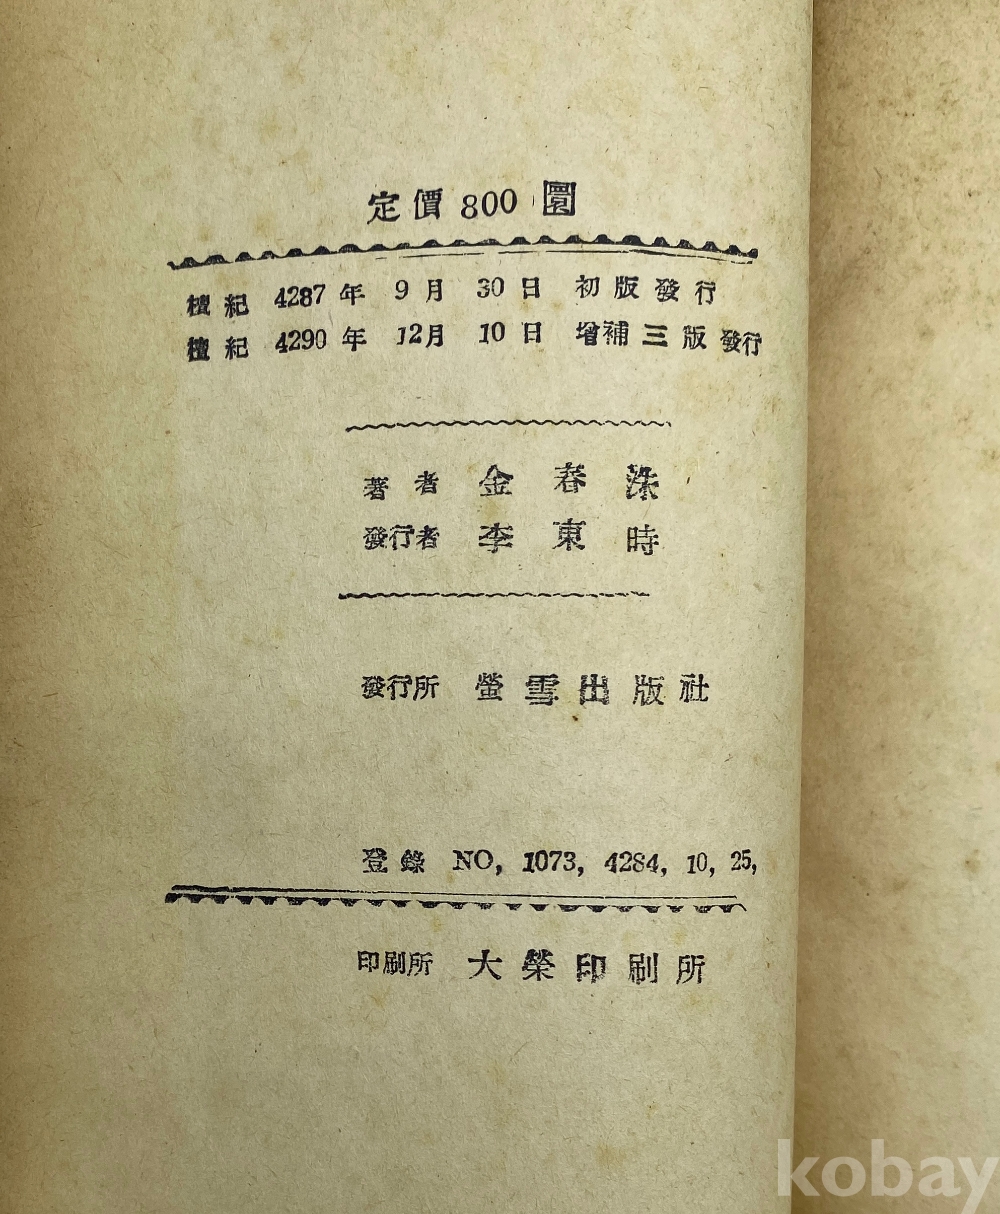 定價 800 圜
檀紀 4287年 9月 30日 初版發行
檀紀 4290年 12月 10日 增補三版發行
著者 金春洙
發行者 李東時
發行所 螢雪出版社
登錄 NO, 1073, 4284, 10, 25,
印刷所 大榮印刷所
kobay